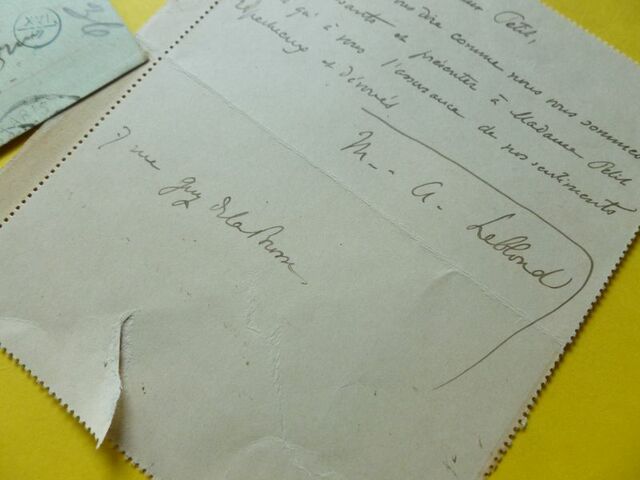 Petit,
dire comme nous vous sommes
et présenter à Madame Petit
qu'à vous l'assurance de nos sentiments
et dévoués
M.-A. Leblond
7 rue Guy de la Brosse.
XVI